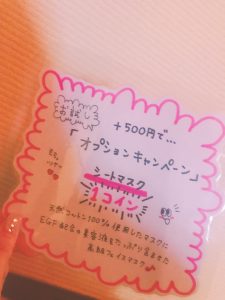 お試し
+500円で...
「オプションキャンペーン」
シートマスク
1コイン
天然コットン100%使用したマスクに
EGF配合の美容液をたっぷり含ませた
高級フェイスマスク♪